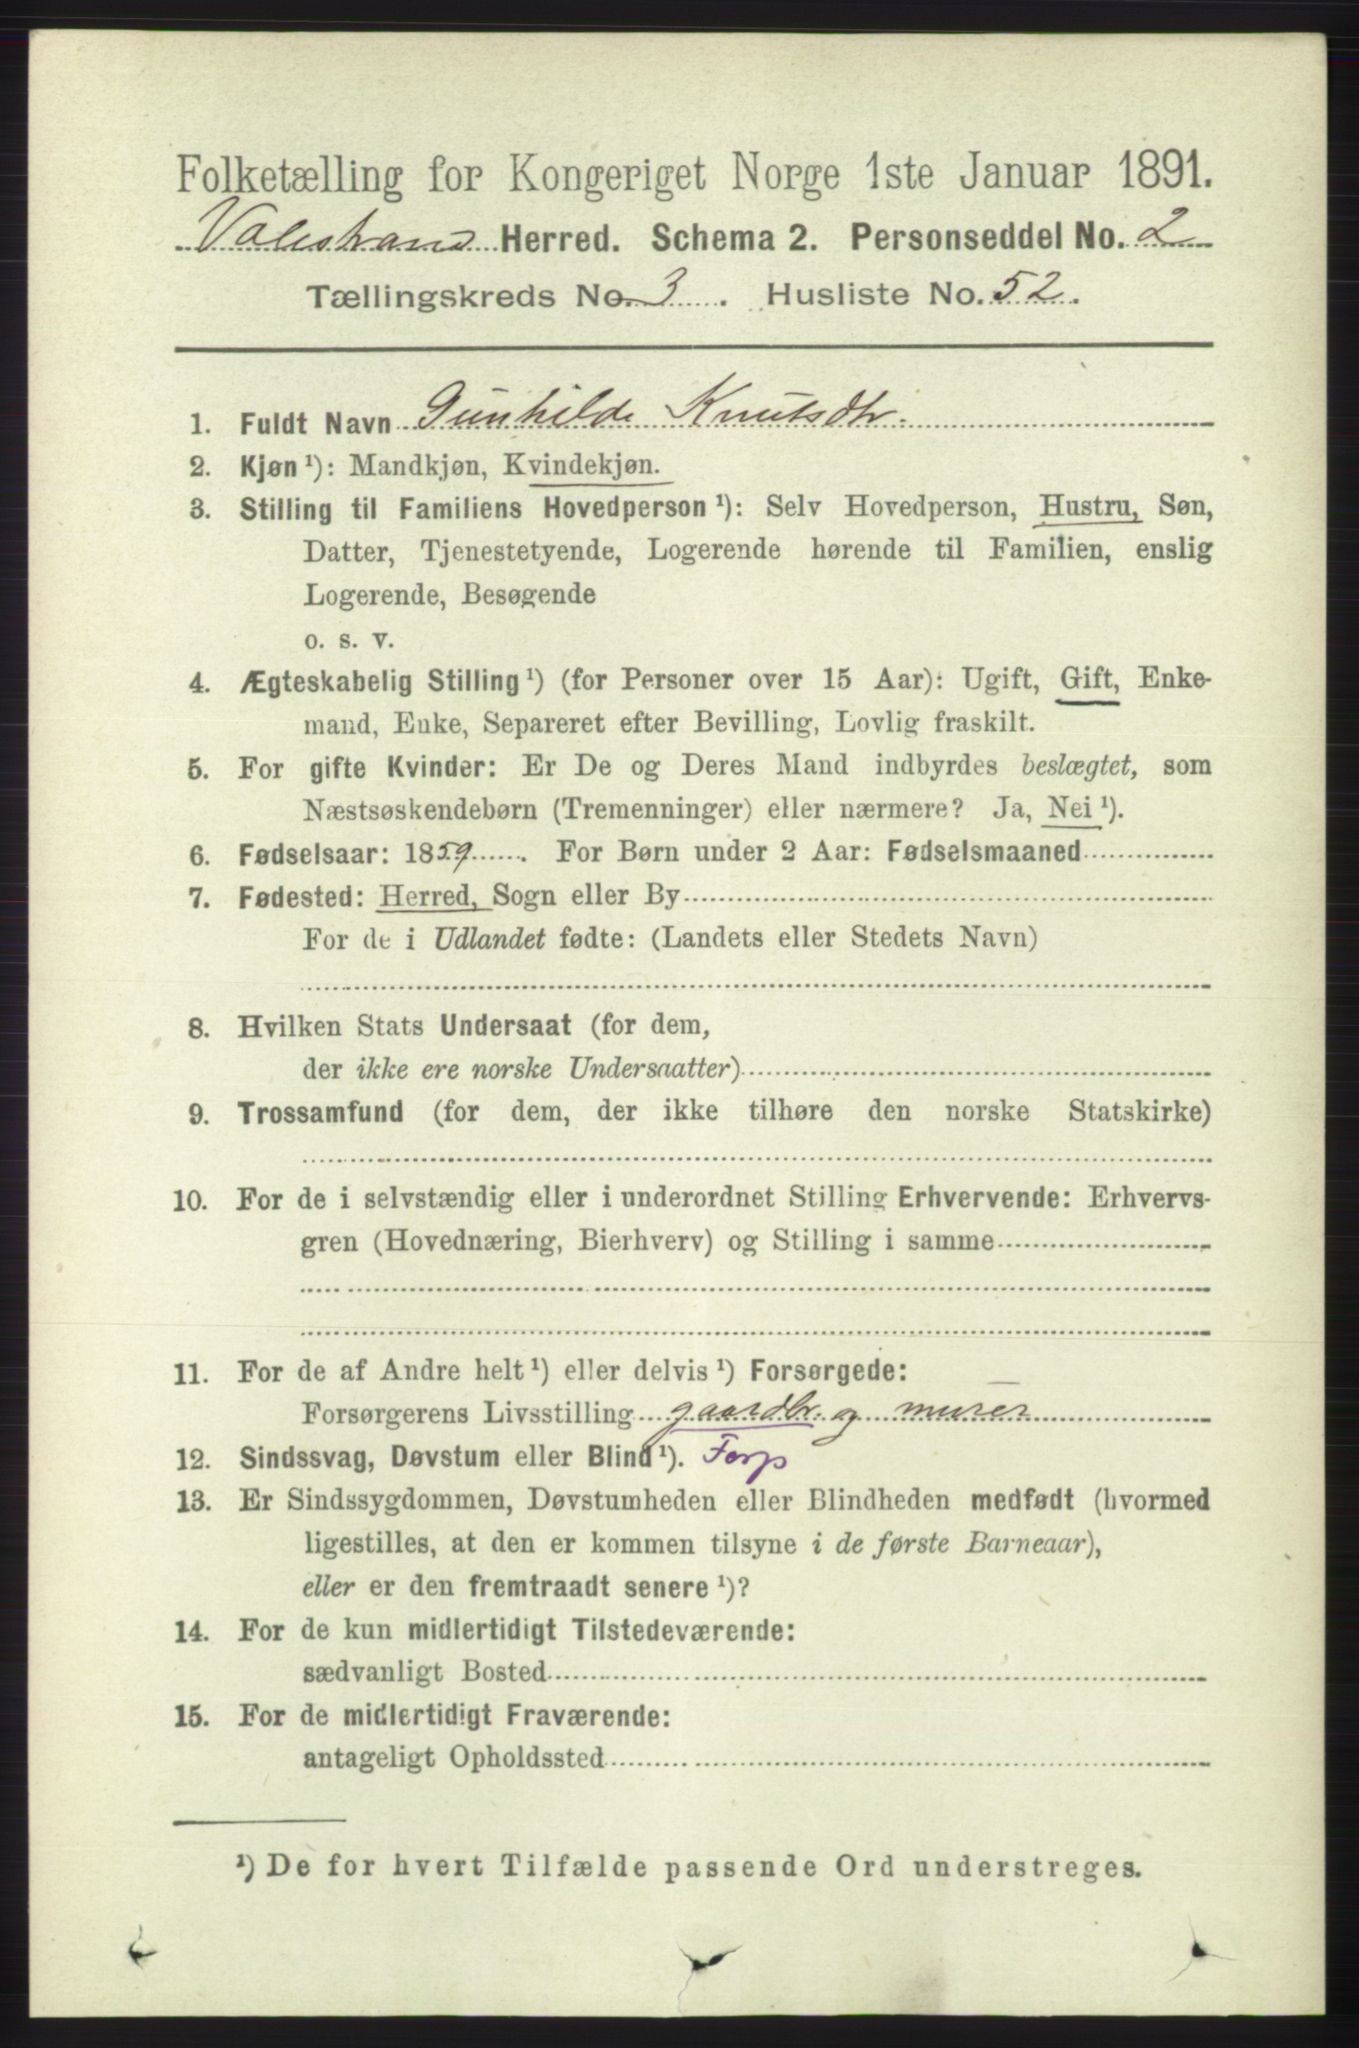 Folketælling for Kongeriget Norge 1ste Januar 1891.
Valestrand Herred. Schema 2. Personseddel No. 2
Tællingskreds No. 3. Husliste No. 52.
1. Fuldt Navn Gunhilde Knutsdtr.
2. Kjøn ¹): Mandkjøn, Kvindekjøn.
3. Stilling til Familiens Hovedperson ¹): Selv Hovedperson, Hustru, Søn,
Datter, Tjenestetyende, Logerende hørende til Familien, enslig
Logerende, Besøgende
o. s. v.
4. Ægteskabelig Stilling ¹) (for Personer over 15 Aar): Ugift, Gift, Enke-
mand, Enke, Separeret efter Bevilling, Lovlig fraskilt.
5. For gifte Kvinder: Er De og Deres Mand indbyrdes beslægtet, som
Næstsøskendebørn (Tremenninger) eller nærmere? Ja, Nei ¹).
6. Fødselsaar: 1859. For Børn under 2 Aar: Fødselsmaaned
7. Fødested: Herred, Sogn eller By
For de i Udlandet fødte: (Landets eller Stedets Navn)
8. Hvilken Stats Undersaat (for dem,
der ikke ere norske Undersaatter)
9. Trossamfund (for dem, der ikke tilhøre den norske Statskirke)
10. For de i selvstændig eller i underordnet Stilling Erhvervende: Erhvervs-
gren (Hovednæring, Bierhverv) og Stilling i samme
11. For de af Andre helt ¹) eller delvis ¹) Forsørgede:
Forsørgerens Livsstilling gaardbr. og murer
12. Sindssvag, Døvstum eller Blind ¹). Forp
13. Er Sindssygdommen, Døvstumheden eller Blindheden medfødt (hvormed
ligestilles, at den er kommen tilsyne i de første Barneaar),
eller er den fremtraadt senere ¹)?
14. For de kun midlertidigt Tilstedeværende:
sædvanligt Bosted
15. For de midlertidigt Fraværende:
antageligt Opholdssted
¹) De for hvert Tilfælde passende Ord understreges.